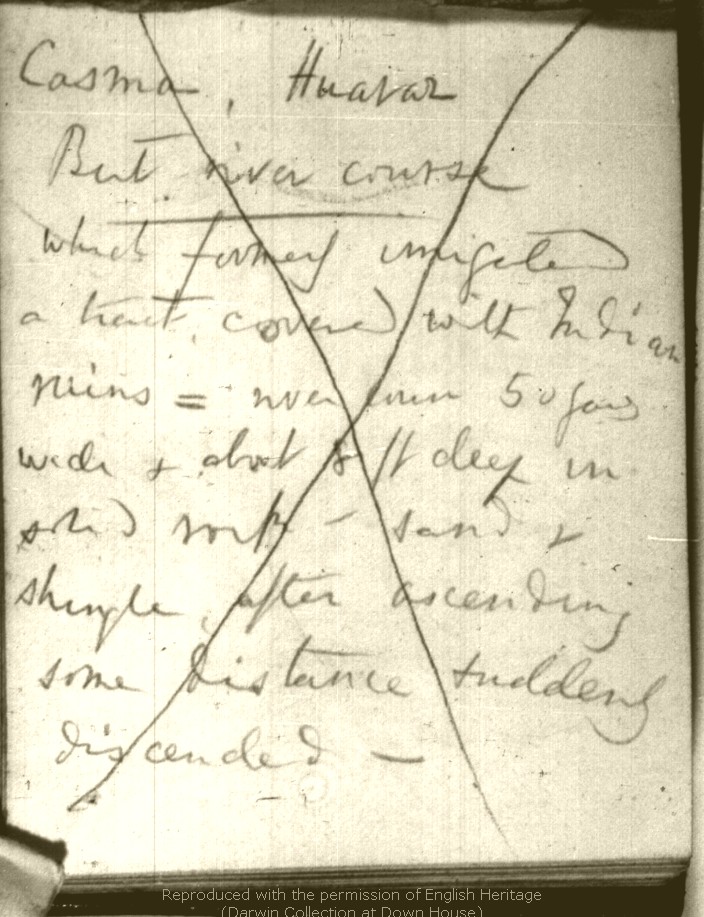 Casma, Huaraz
But river course
which formerly irrigated
a tract, covered with Indian
ruins = river course 50 yards
wide & about 8 ft deep in
solid rock — sand &
shingle, after ascending
some distance suddenly
discended —
Reproduced with the permission of English Heritage
(Darwin Collection at Down House)